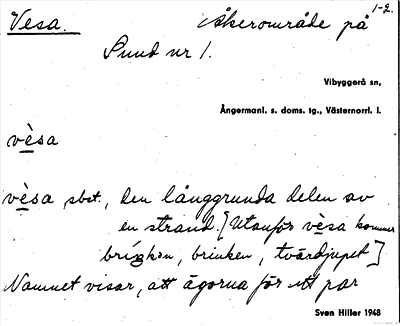 1-2.
Vesa. Åkerområde på
Sund nr 1.
Vibyggerå sn,
Ångermanl. s. doms. tg., Västernorrl. l.
vèsa
vèsa sbst., den långgrunda delen av
en strand. [Utanför vèsa kommer
brinken, tvärdjupet]
Namnet visar, att ägorna för ett par
Sven Hiller 1948